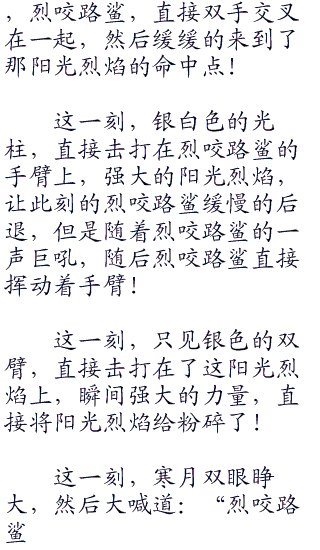 ，烈咬路鲨，直接双手交叉
在一起，然后缓缓的来到了
那阳光烈焰的命中点！
这一刻，银白色的光
柱，直接击打在烈咬路鲨的
手臂上，强大的阳光烈焰，
让此刻的烈咬路鲨缓慢的后
退，但是随着烈咬路鲨的一
声巨吼，随后烈咬路鲨直接
挥动着手臂！
这一刻，只见银色的双
臂，直接击打在了这阳光烈
焰上，瞬间强大的力量，直
接将阳光烈焰给粉碎了！
这一刻，寒月双眼睁
大，然后大喊道：“烈咬路
鲨